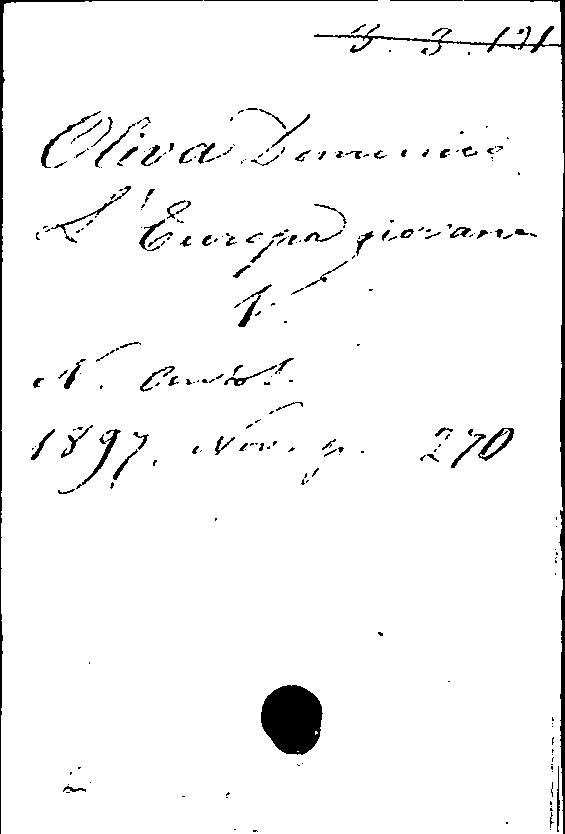 5. 3. 121
Oliva Domenico
L'Europa giovane
F.
N. Antol.
1897. Nov. p. 270